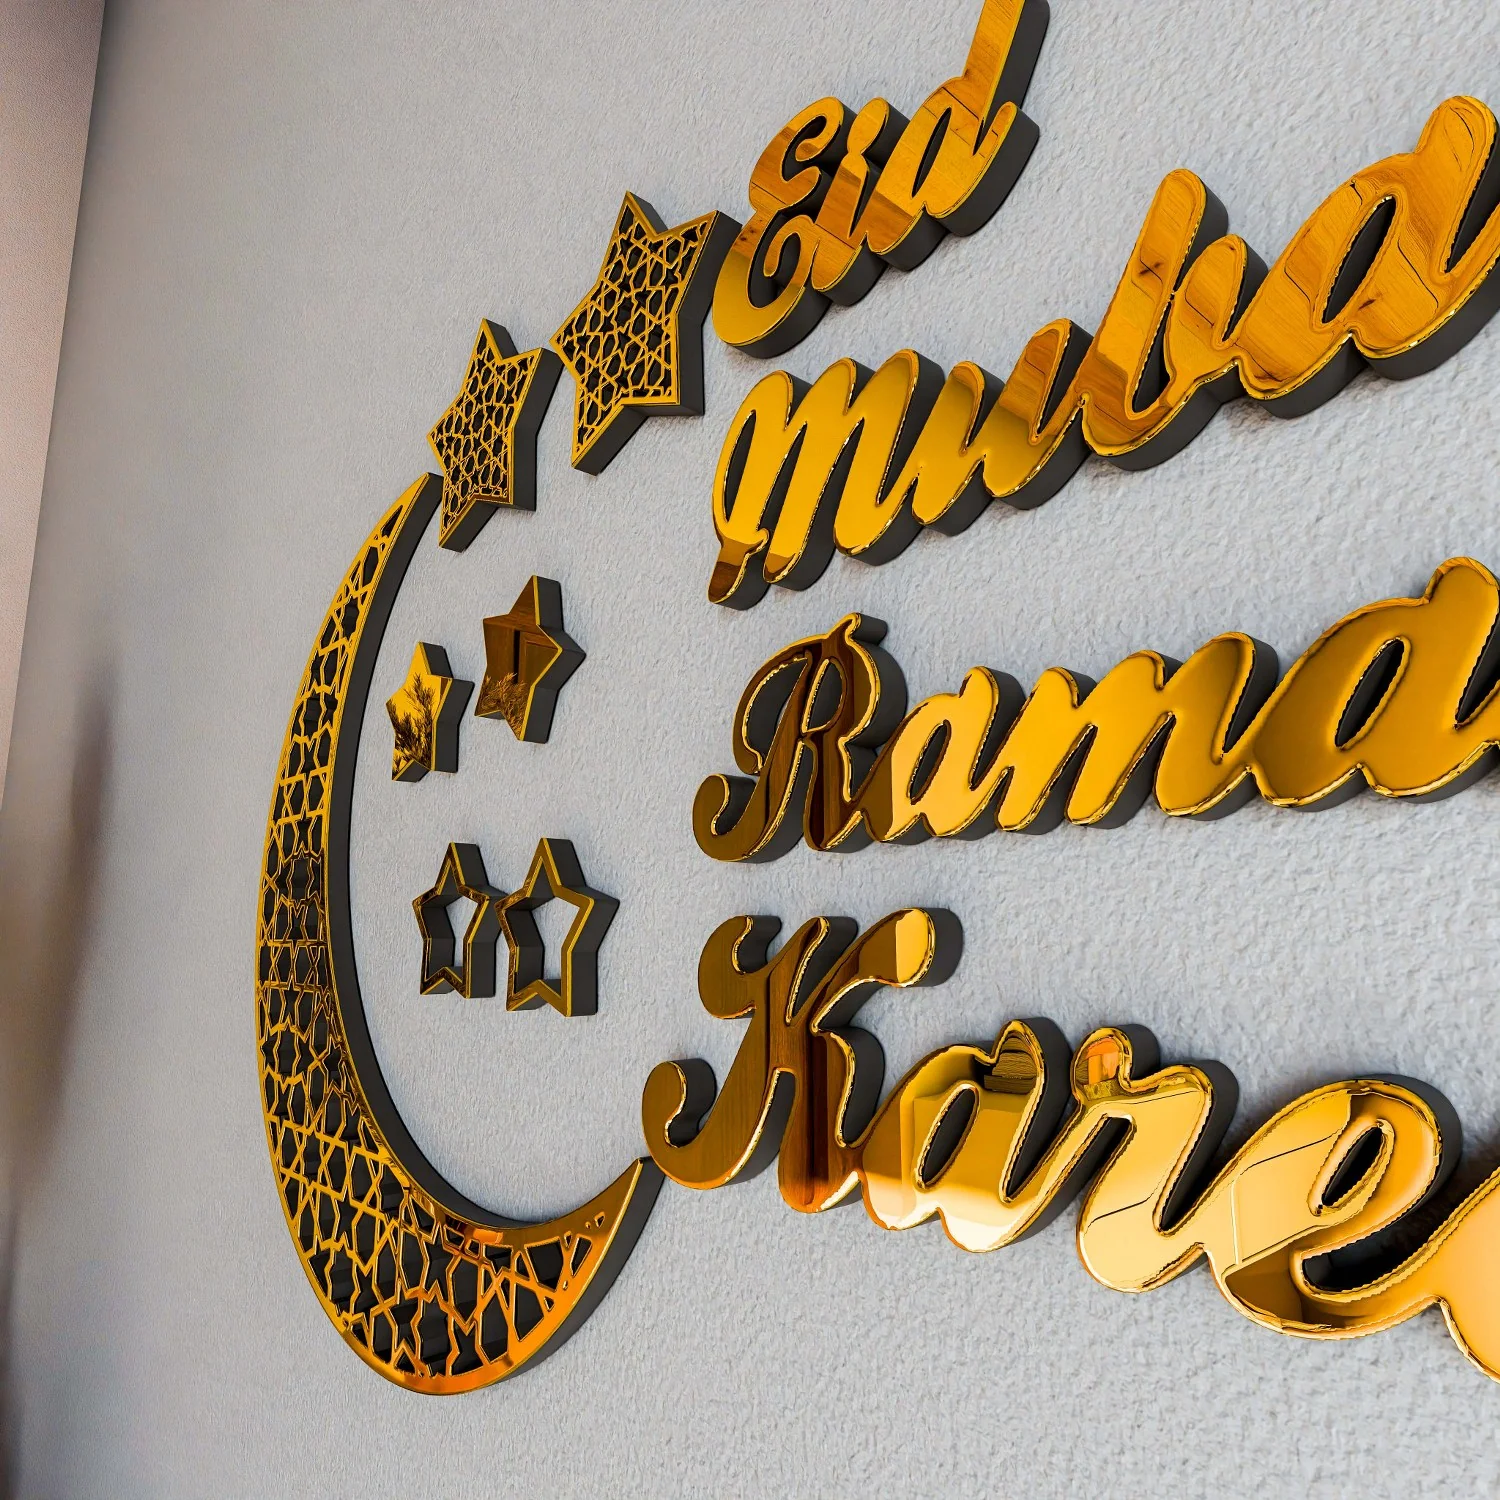 Eid
Muba
Ramada
Kare